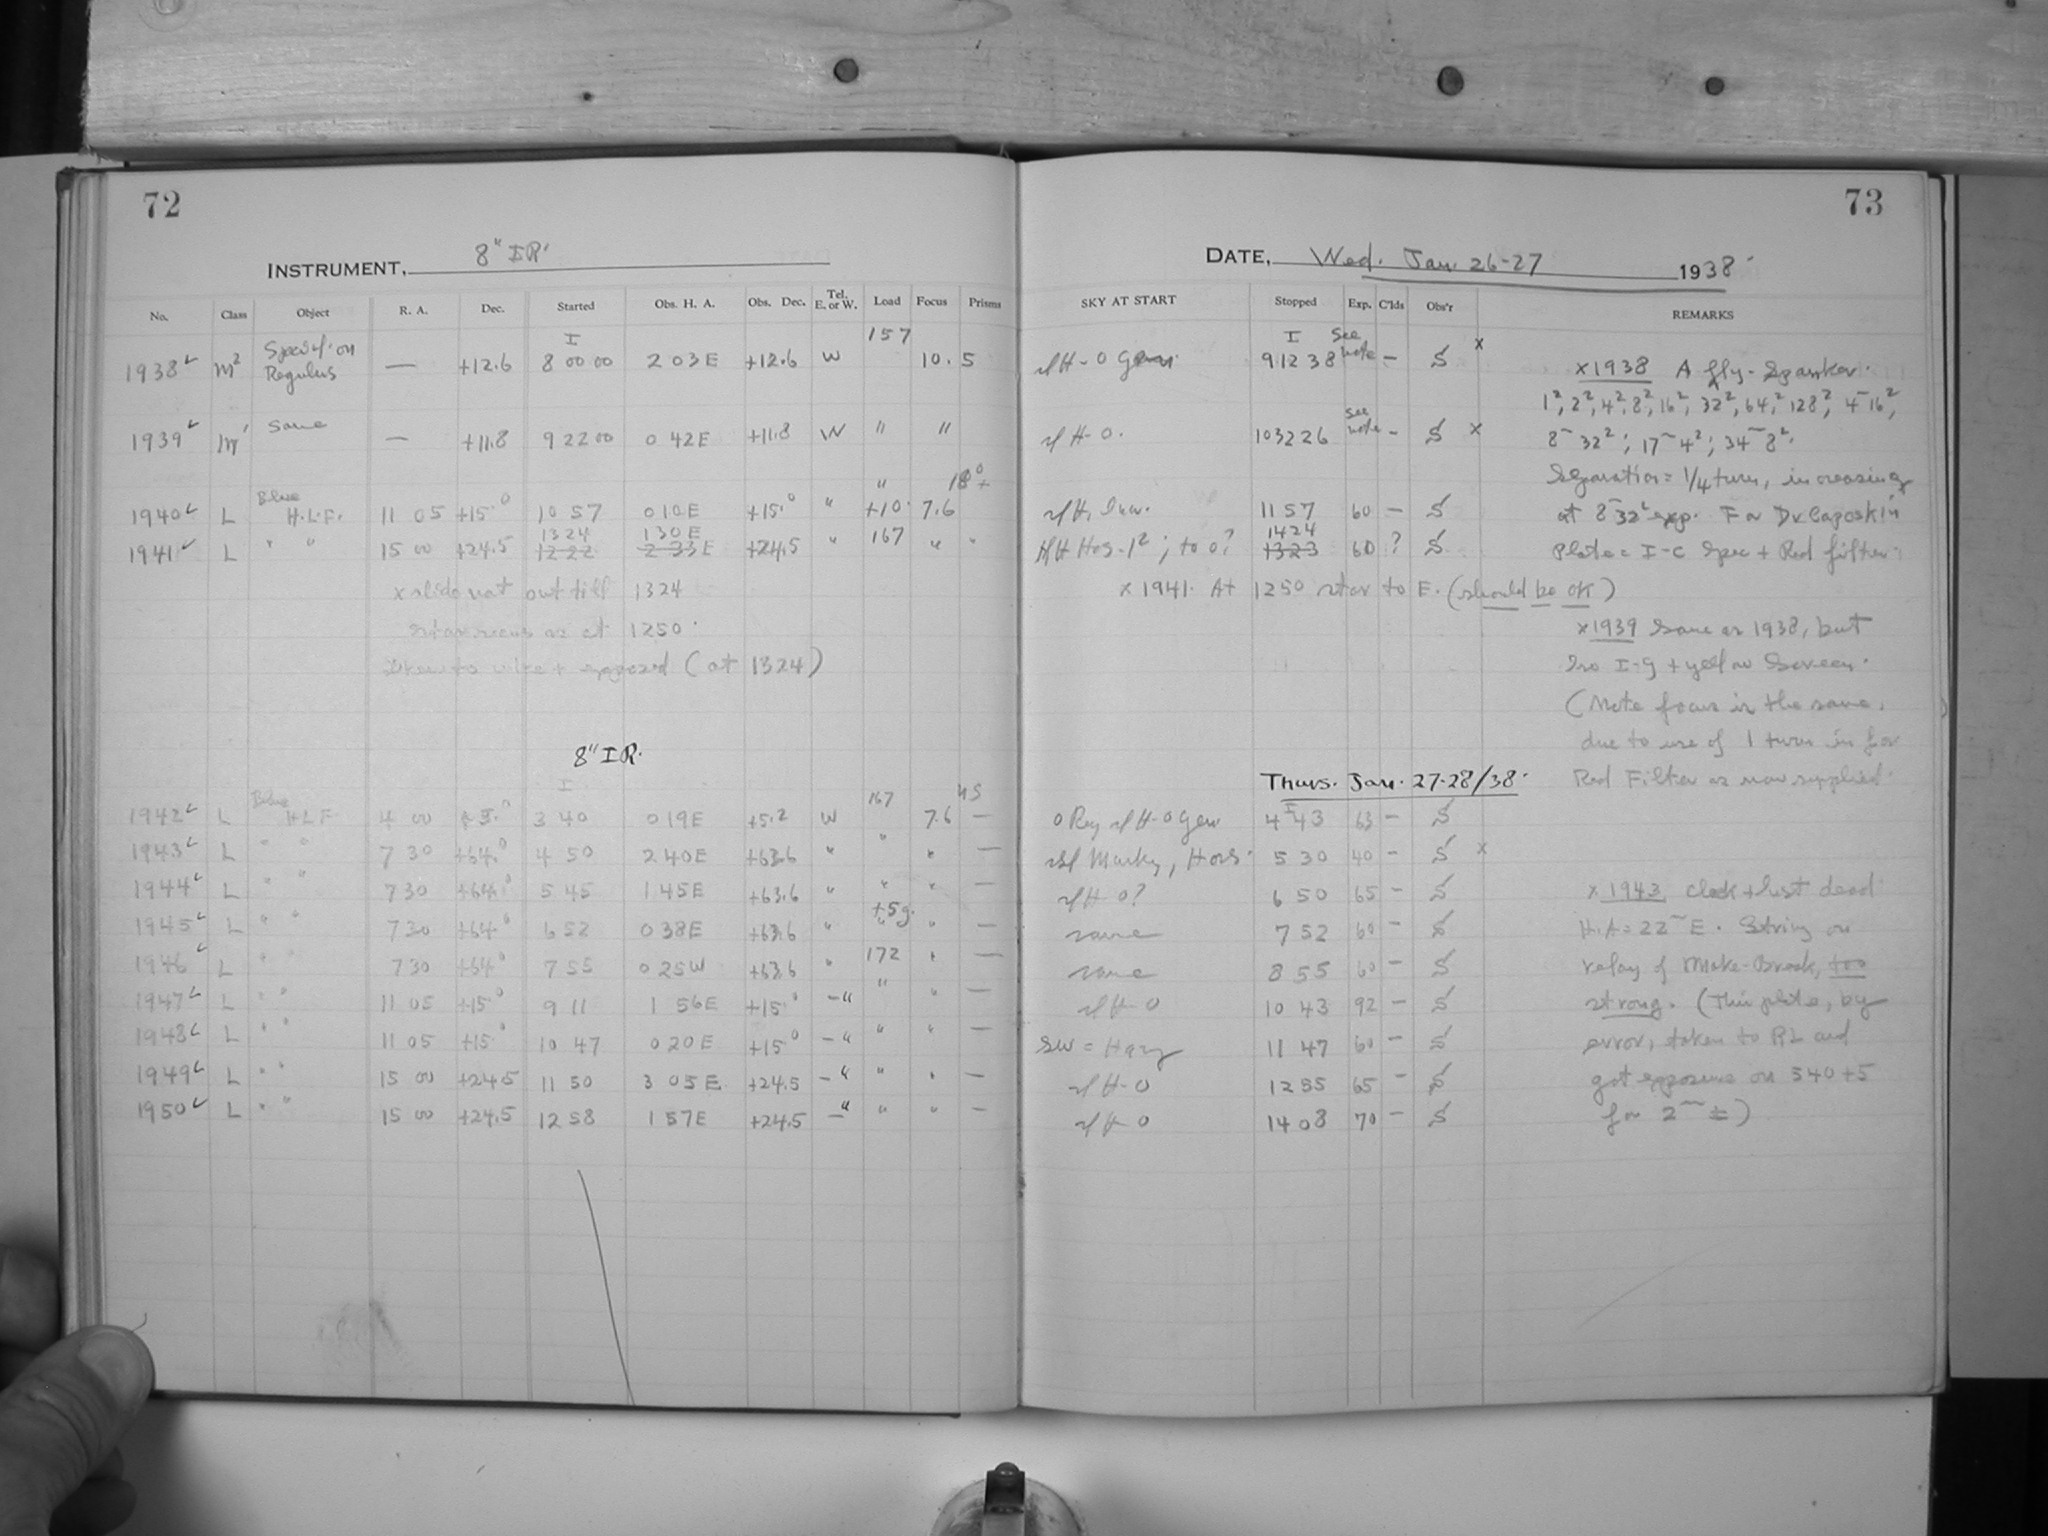 72
INSTRUMENT, 8" IR.
No. Class Object R. A. Dec. Started Obs. H. A. Obs. Dec. Tel. E. or W. Load Focus Prisms
I 157
1938 M² Special on Regulus — +12.6 8 00 00 2 03 E +12.6 W 10.5
1939 M' Same — +11.8 9 22 00 0 42 E +11.8 W " "
" 18° +
1940 L Blue H.L.F. 11 05 +15.° 10 57 0 10 E +15.° " +10. 7.6
1324 130E
1941 L " " 15 00 +24.5 1222 2 33 E +24.5 " 167 " "
x slide not out till 1324
star seems as at 1250.
to wire + exposed (at 1324)
8" IR.
I 167 45
1942 L Blue H.L.F. 4 00 +5.° 3 40 0 19 E +5.2 W 7.6 —
1943 L " " 7 30 +64.° 4 50 2 40 E +63.6 " " " —
1944 L " " 7 30 +64.° 5 45 1 45 E +63.6 " " " —
+5g.
1945 L " " 7 30 +64.° 6 52 0 38 E +63.6 " " " —
1946 L " " 7 30 +64° 7 55 0 25 W +63.6 " 172 " —
1947 L " " 11 05 +15.° 9 11 1 56 E +15.° -" " " —
1948 L " " 11 05 +15° 10 47 0 20 E +15.° -" " " —
1949 L " " 15 00 +24.5 11 50 3 05 E +24.5 -" " " —
1950 L " " 15 00 +24.5 12 58 1 57 E +24.5 -" " " —
73
DATE, Wed. Jan 26-27 1938.
SKY AT START Stopped Exp. C'lds Obs'r REMARKS
I See note
H-0 Gen. 9 12 38 — S x
See note
H-0. 10 32 26 - S x
H, 11 57 60 - S
1424
H Hos-1²; to 0? 1323 60 ? S
x 1941. At 1250 star to E. (should be OK)
x1938 A
1², 2², 4², 8², 16², 32², 64², 128², 4-16²,
8-32²; 17-4²; 34-8².
Separation = 1/4 turn, increasing
at 8-32² exp. For Dr Gaposkin
Plate = I-C Spec + Red filter.
x1939 Same as 1938, but
Iso I-g + yellow Screen.
(Note focus is the same,
due to use of 1 turn in for
Red Filter as now supplied.
Thurs. Jan. 27-28/38.
I
0 H-0 Gen 4 43 63 - S
Murky, Hos. 5 30 40 - S x
H 0? 6 50 65 - S
same 7 52 60 - S
same 8 55 60 - S
H-0 10 43 92 - S
SW = Hazy 11 47 60 - S
H-0 12 55 65 - S
H-0 14 08 70 - S
x 1943 Clock + lust dead
H.A = 22 E. String on
relay of Make-Break, too
strong. (This plate, by
error, taken to RL and
got exposure on 540 +5
for 2 ±)